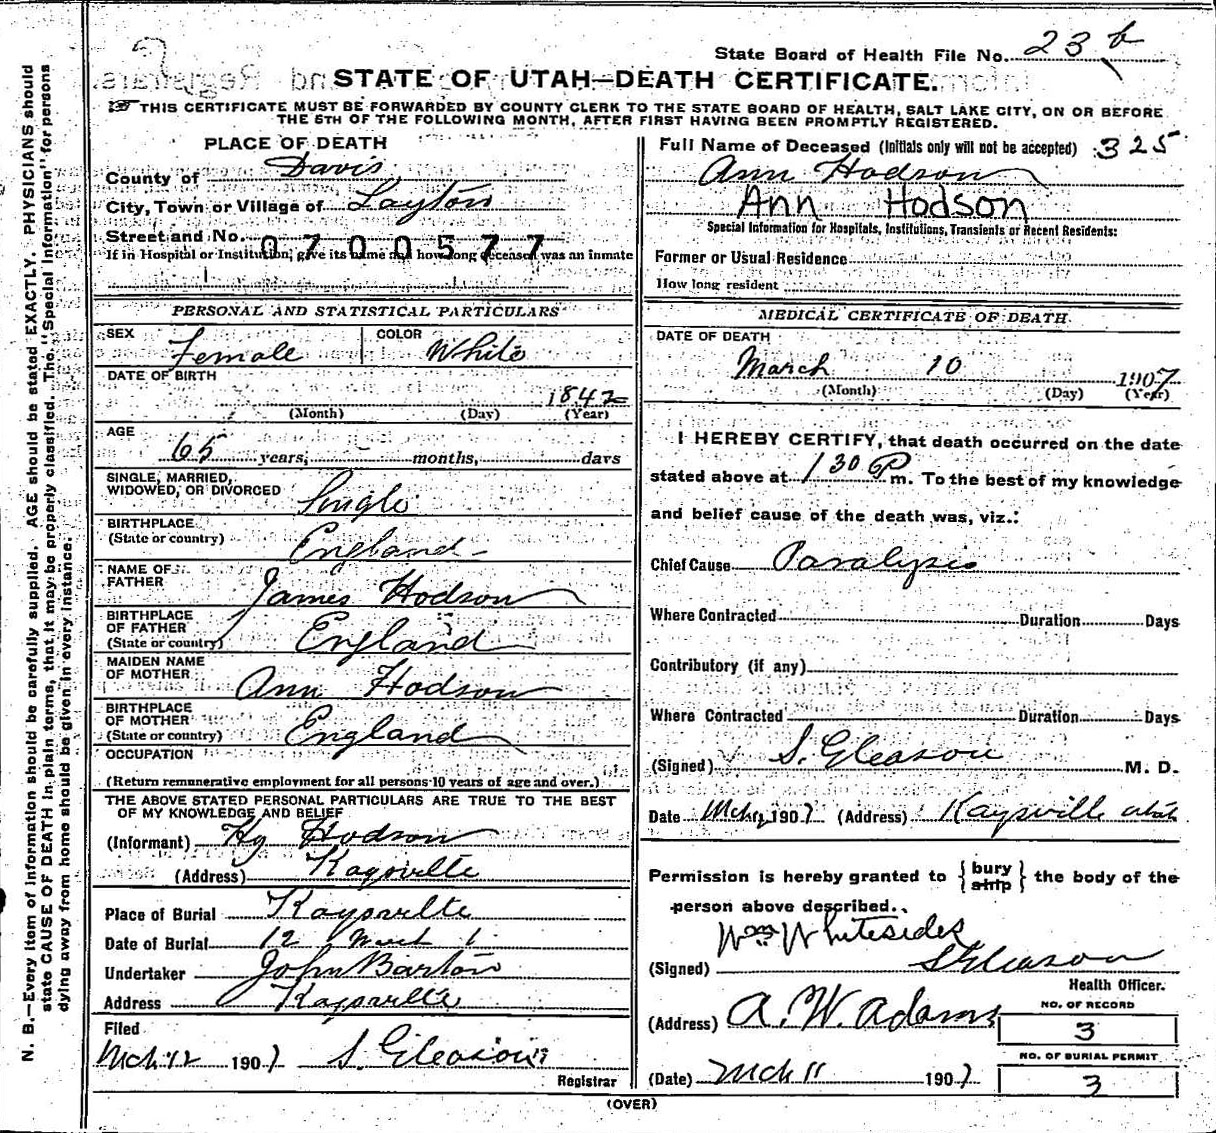 State Board of Health File No. 23 b
STATE OF UTAH—DEATH CERTIFICATE.
THIS CERTIFICATE MUST BE FORWARDED BY COUNTY CLERK TO THE STATE BOARD OF HEALTH, SALT LAKE CITY, ON OR BEFORE
THE 5TH OF THE FOLLOWING MONTH, AFTER FIRST HAVING BEEN PROMPTLY REGISTERED.
N. B.—Every item of information should be carefully supplied. AGE should be stated EXACTLY. PHYSICIANS should
state CAUSE OF DEATH in plain terms, that it may be properly classified. The "Special Information" for persons
dying away from home should be given in every instance.
PLACE OF DEATH
County of Davis
City, Town or Village of Layton
Street and No.
0700577
If in Hospital or Institution, give its name and how long deceased was an inmate
PERSONAL AND STATISTICAL PARTICULARS
SEX Female COLOR White
DATE OF BIRTH
1842
(Month) (Day) (Year)
AGE
65 years, months, days
SINGLE, MARRIED,
WIDOWED, OR DIVORCED Single
BIRTHPLACE
(State or country) England
NAME OF
FATHER James Hodson
BIRTHPLACE
OF FATHER
(State or country) England
MAIDEN NAME
OF MOTHER Ann Hodson
BIRTHPLACE
OF MOTHER
(State or country) England
OCCUPATION
(Return remunerative employment for all persons 10 years of age and over.)
THE ABOVE STATED PERSONAL PARTICULARS ARE TRUE TO THE BEST
OF MY KNOWLEDGE AND BELIEF
(Informant) Hy Hodson
(Address) Kaysville
Place of Burial Kaysville
Date of Burial 12 March
Undertaker John Barton
Address Kaysville
Filed
Mch 12 1907 S. Gleason
Registrar
Full Name of Deceased (Initials only will not be accepted) 325
Ann Hodson
Ann Hodson
Special Information for Hospitals, Institutions, Transients or Recent Residents:
Former or Usual Residence
How long resident
MEDICAL CERTIFICATE OF DEATH
DATE OF DEATH
March 10 1907
(Month) (Day) (Year)
I HEREBY CERTIFY, that death occurred on the date
stated above at 1 30 P m. To the best of my knowledge
and belief cause of the death was, viz.:
Chief Cause Paralysis
Where Contracted Duration Days
Contributory (if any)
Where Contracted Duration Days
(Signed) S. Gleason M. D.
Date Mch 1907 (Address) Kaysville Utah
Permission is hereby granted to { bury ship } the body of the
person above described.
Wm Whitesides
(Signed) S Gleason
Health Officer.
(Address) A. W. Adams
NO. OF RECORD
3
NO. OF BURIAL PERMIT
3
(Date) Mch 11 1907
(OVER)